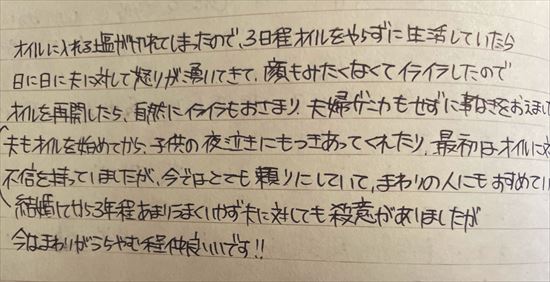 オイルに入れる塩がきれてしまったので、3日程オイルをやらずに生活していたら
日に日に夫に対して怒りが湧いてきて、顔もみたくなくてイライラしたので
オイルを再開したら、自然にイライラもおさまり、夫婦ゲンカもせずに事なきをおえまし
夫もオイルを始めてから、子供の夜泣きにもつきあってくれたり、最初はオイルに
不信を持っていましたが、今ではとても頼りにしていて、まわりの人にもおすすめてい
結婚してから3年程あまりうまくいかず夫に対しても殺意がありましたが
今はまわりがうらやむ程仲良いいです!!